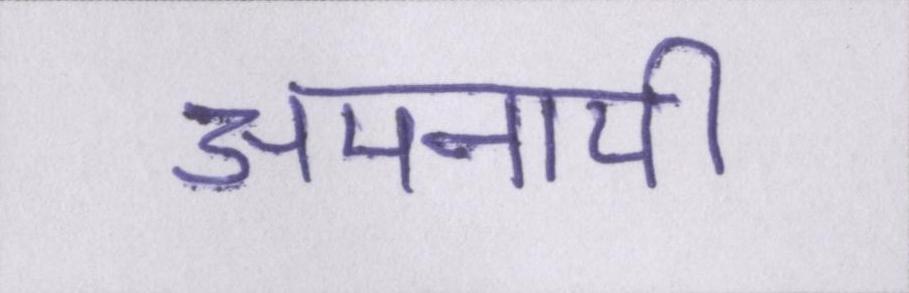 अपनायी